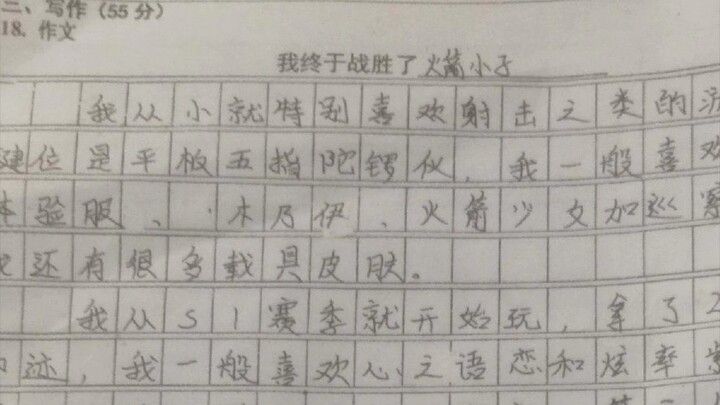 二、写作（55分）
18. 作文
我终于战胜了火箭小子
我从小就特别喜欢射击之类的游
键位是平板五指陀锣仪，我一般喜欢
体验服、木乃伊、火箭少女加巡
还有很多载具皮肤。
我从S1赛季就开始玩，拿了
迹，我一般喜欢心之语恋和炫率紫